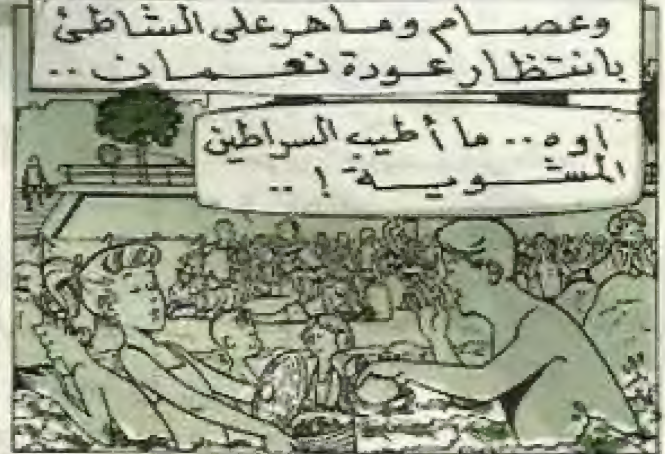 وعصام وماهر على الشاطئ
بانتظار عودة نعمان ..
اوه .. ما أطيب السراطين
المشوية ! ..